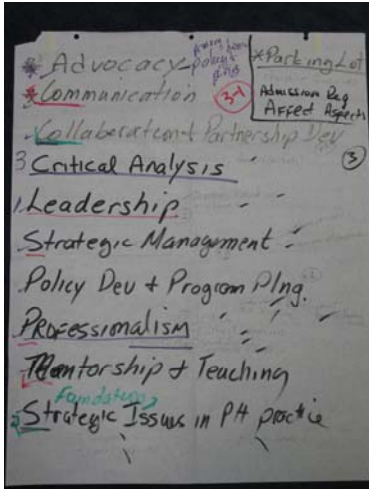 * Advocacy - policy
* Parking Lot
Admission Req
Affect Aspects
* Communication
3-1
Collaboration & Partnership Dev
3 Critical Analysis
3
1. Leadership
Strategic Management
Policy Dev & Program Plng.
Professionalism
Mentorship & Teaching
Foundations
2 Strategic Issues in PH practie